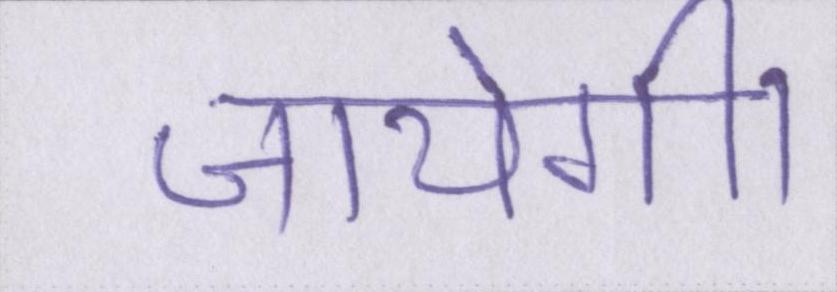 जायेगी।